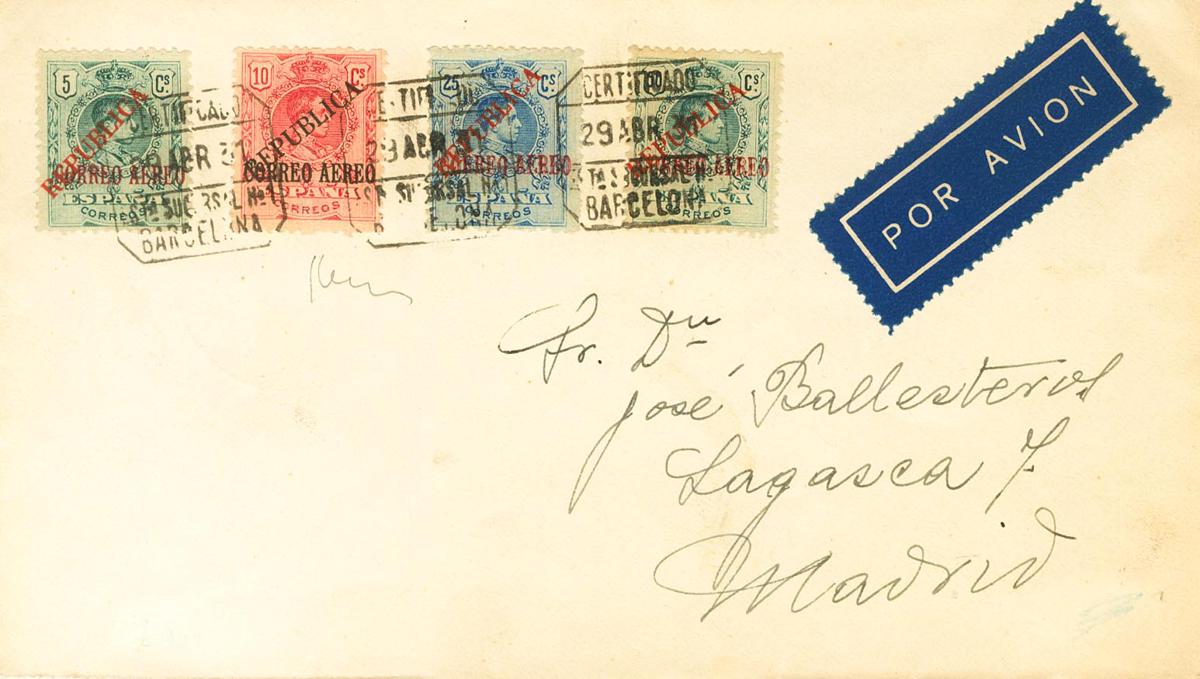 5 Cs
REPUBLICA
CORREO AEREO
ESPAÑA
CORREOS
10 Cs
REPUBLICA
CORREO AEREO
ESPAÑA
CORREOS
25 Cs
REPUBLICA
CORREO AEREO
ESPAÑA
CORREOS
Cs
REPUBLICA
CORREO AEREO
ESPAÑA
CORREOS
CERTIFICADO
29 ABR 3
SUCURSAL Nº1
BARCELONA
29 ABR
SUCURSAL Nº
CERTIFICADO
29 ABR
SUCURSAL Nº
BARCELONA
POR AVION
Sr. Dn
José Ballesteros
Lagasca 7.
Madrid